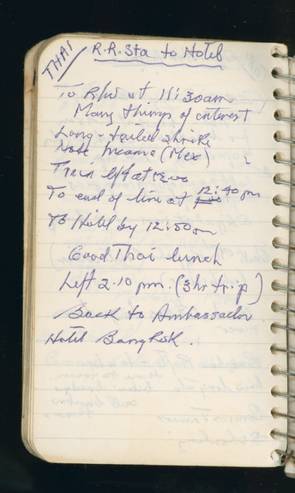 THAI
R.R. Sta to Hotel
To R/W at 11:30am
Many things of interest
Long-tailed shrike
(Mex)
Train left at
To end of line at 12:40 pm
To Hotel by 12:50
Good Thai lunch
Left 2.10 pm. (3 hr trip)
Back to Ambassador
Hotel Bangkok.